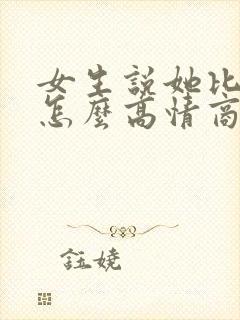 女生說她比
怎麼高情商
鈺嬈